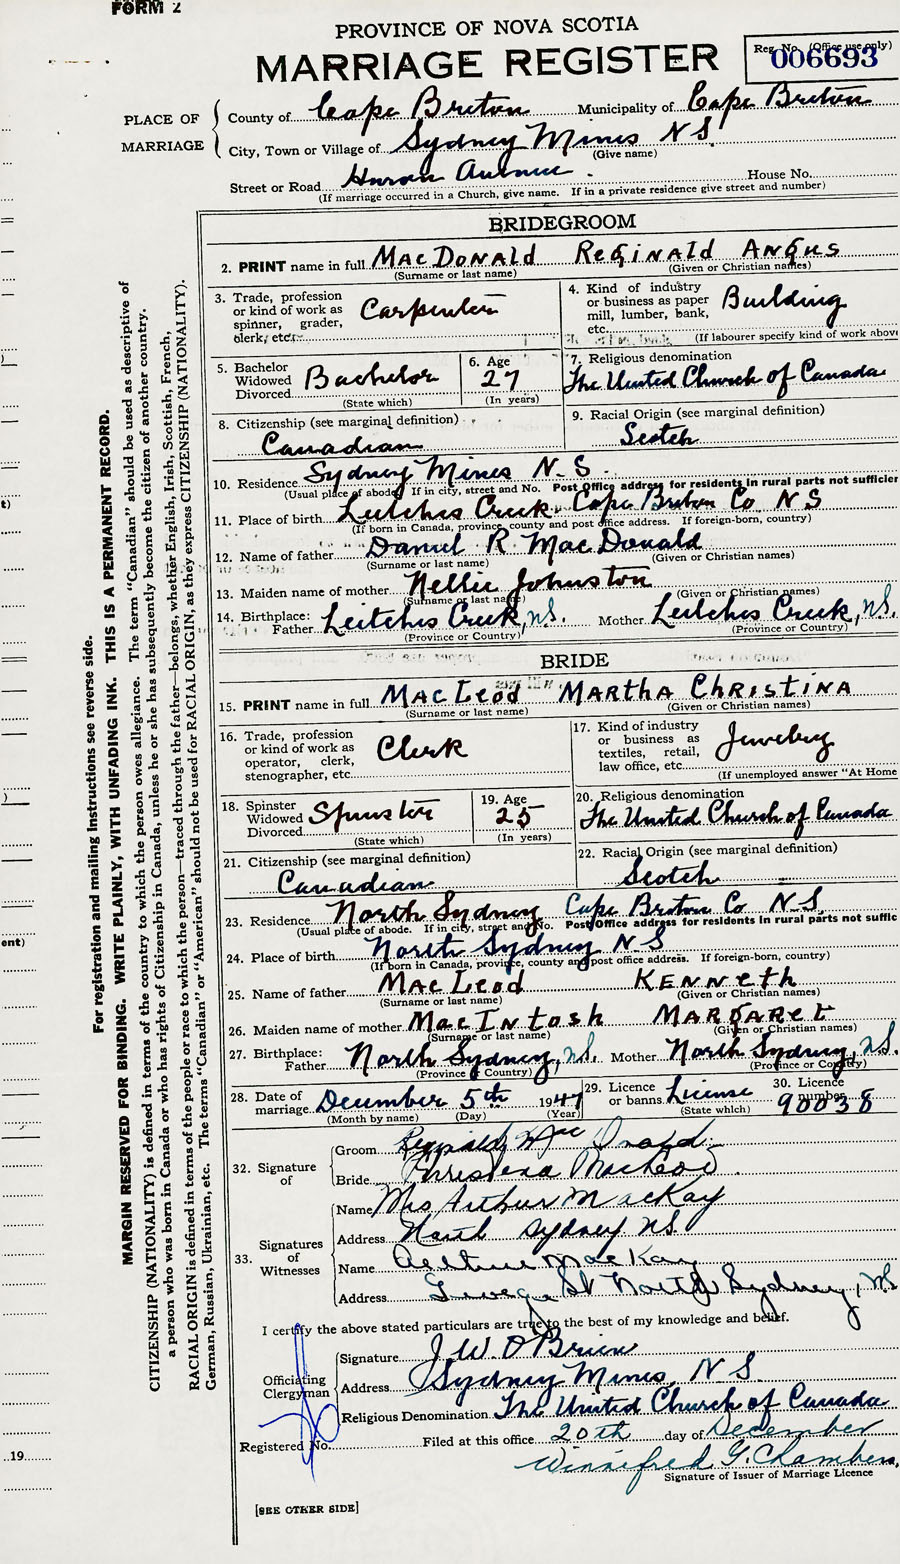 FORM 2
PROVINCE OF NOVA SCOTIA
MARRIAGE REGISTER
Reg. No. (Office use only)
006693
PLACE OF MARRIAGE
County of Cape Breton Municipality of Cape Breton
City, Town or Village of Sydney Mines N S.
(Give name)
Street or Road Huron Avenue. House No.
(If marriage occurred in a Church, give name. If in a private residence give street and number)
BRIDEGROOM
2. PRINT name in full MacDonald Reginald Angus
(Surname or last name) (Given or Christian names)
3. Trade, profession or kind of work as spinner, grader, clerk, etc. Carpenter
4. Kind of industry or business as paper mill, lumber, bank, etc. Building
(If labourer specify kind of work above
5. Bachelor Widowed Divorced Bachelor
(State which)
6. Age 27
(In years)
7. Religious denomination
The United Church of Canada
8. Citizenship (see marginal definition)
Canadian
9. Racial Origin (see marginal definition)
Scotch
10. Residence Sydney Mines N.S.
(Usual place of abode. If in city, street and No. Post Office address for residents in rural parts not sufficien
11. Place of birth Leitches Creek Cape Breton Co N S
(If born in Canada, province, county and post office address. If foreign-born, country)
12. Name of father Daniel R MacDonald
(Surname or last name) (Given or Christian names)
13. Maiden name of mother Nellie Johnston
(Surname or last name) (Given or Christian names)
14. Birthplace: Father Leitches Creek, N.S. Mother Leitches Creek, N.S.
(Province or Country) (Province or Country)
BRIDE
15. PRINT name in full MacLeod Martha Christina
(Surname or last name) (Given or Christian names)
16. Trade, profession or kind of work as operator, clerk, stenographer, etc. Clerk
17. Kind of industry or business as textiles, retail, law office, etc. Jewelry
(If unemployed answer "At Home
18. Spinster Widowed Divorced Spinster
(State which)
19. Age 25
(In years)
20. Religious denomination
The United Church of Canada
21. Citizenship (see marginal definition)
Canadian
22. Racial Origin (see marginal definition)
Scotch
23. Residence North Sydney Cape Breton Co N.S.
(Usual place of abode. If in city, street and No. Post Office address for residents in rural parts not suffic
24. Place of birth North Sydney N S
(If born in Canada, province, county and post office address. If foreign-born, country)
25. Name of father MacLeod Kenneth
(Surname or last name) (Given or Christian names)
26. Maiden name of mother MacIntosh Margaret
(Surname or last name) (Given or Christian names)
27. Birthplace: Father North Sydney, N.S. Mother North Sydney, N.S.
(Province or Country) (Province or Country)
28. Date of marriage December 5th 1947
(Month by name) (Day) (Year)
29. Licence or banns License
(State which)
30. Licence number 90038
32. Signature of
Groom Reginald Mac Donald
Bride Christena MacLeod.
33. Signatures of Witnesses
Name Mrs Arthur MacKay
Address North Sydney NS.
Name Arthur MacKay
Address St North Sydney, N.S
I certify the above stated particulars are true to the best of my knowledge and belief.
Officiating Clergyman
Signature J W O'Brien
Address Sydney Mines, N S.
Religious Denomination The United Church of Canada
Registered No. Filed at this office 20th day of December
Winnifred G. Chambers,
Signature of Issuer of Marriage Licence
[SEE OTHER SIDE]
For registration and mailing instructions see reverse side.
MARGIN RESERVED FOR BINDING. WRITE PLAINLY, WITH UNFADING INK. THIS IS A PERMANENT RECORD.
CITIZENSHIP (NATIONALITY) is defined in terms of the country to which the person owes allegiance. The term "Canadian" should be used as descriptive of
a person who was born in Canada or who has rights of Citizenship in Canada, unless he or she has subsequently become the citizen of another country.
RACIAL ORIGIN is defined in terms of the people or race to which the person—traced through the father—belongs, whether English, Irish, Scottish, French,
German, Russian, Ukrainian, etc. The terms "Canadian" or "American" should not be used for RACIAL ORIGIN, as they express CITIZENSHIP (NATIONALITY).
t)
)
ent)
19